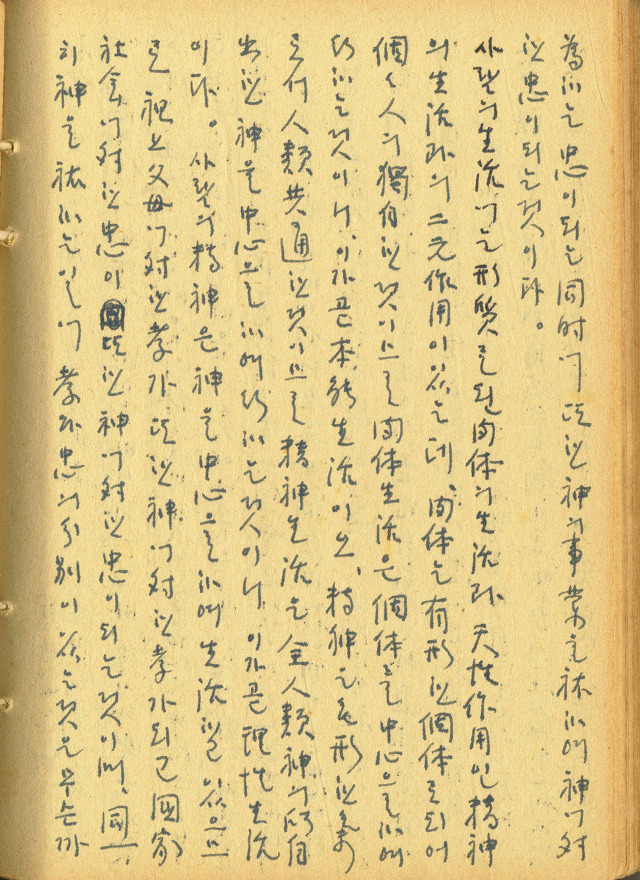 為하는 忠이 되는 同時에 또한 神의 事業을 祐하며 神에 対
한 忠이 되는 것이다。
사람의 生活에는 形質로 된 肉体의 生活과 天性作用인 精神
의 生活과의 二元作用이 있는데, 肉体는 有形한 個体로 되어
個々人의 獨自한 것이므로 肉体生活은 個体를 中心으로 하여
하는 것이니, 이가 곧 本能生活이오, 精神은 無形한
로서 人類共通한 것이므로 精神生活은 全人類神의 所自
出한 神을 中心으로 하여 하는 것이니, 이가 곧 理性生活
이다。사람의 精神은 神을 中心으로 하여 生活함이 있으므
로 祖上父母에 対한 孝가 또한 神에 対한 孝가 되고 國家
社会에 対한 忠이 또한 神에 対한 忠이 되는 것이며, 同一
히 神을 祐하는 일에 孝와 忠의 分別이 있는 것은 무슨 까